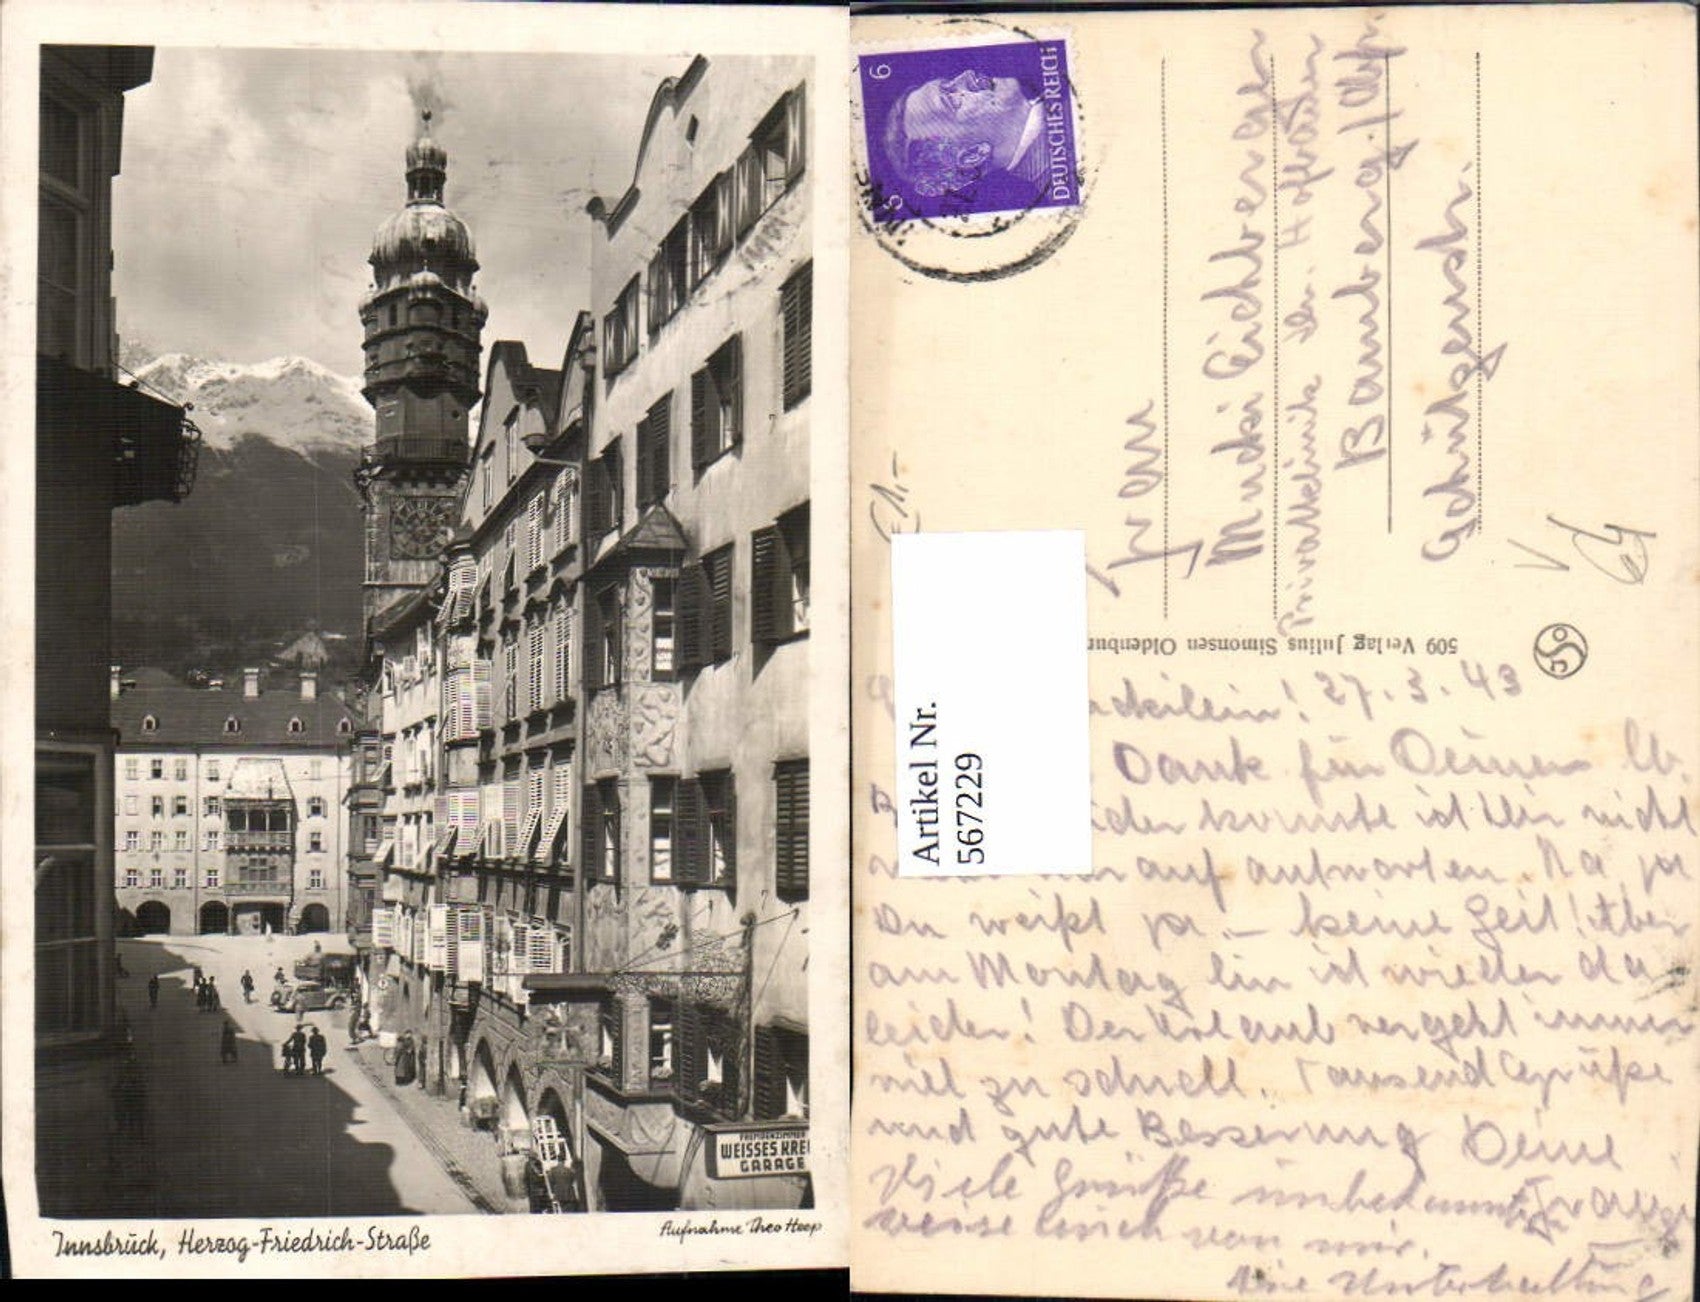 FREMDENZIMMER
WEISSES KRE
GARAGE
Innsbrück, Herzog-Friedrich-Straße
Aufnahme Theo Hoop
6
DEUTSCHES REICH
Artikel Nr.
567229
€1.-
Frau
Mucki Eichberger
Privatklinik Dr. Hofbauer
Bamberg
509 Verlag Julius Simonsen Oldenbur
27.3.43
Dank für Deinen lb.
konnte ich Dir nicht
auf antworten. Na ja
Du weißt ja. – keine Zeit! Aber
am Montag bin ich wieder da
leider! Der Urlaub vergeht immer
viel zu schnell. Tausend Grüße
und gute Besserung Deine
Viele Grüße unbekannter
weise auch von mir.